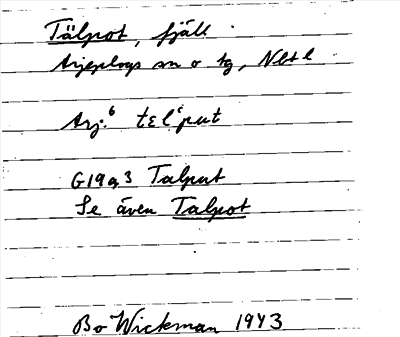 Tälpot, fjäll.
Arjeplogs sn o tg, Nbt l
Arj.⁶ tɛl‘put
G19a,3 Talput
Se även Talpot
Bo Wickman 1943